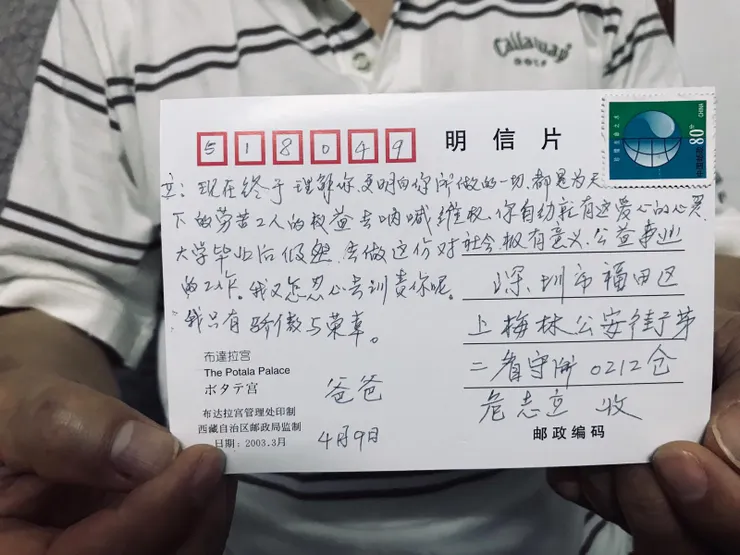 Callaway
GOLF
518049
明信片
80分
CHINA
立：现在终于理解你,更明白你所做的一切,都是为天
下的劳苦工人的权益去呐喊维权。你自幼就有这爱心的心灵
大学毕业后依然去做这份对社会极有意义、公益事业
的工作。我又怎忍心去训责你呢。
我只有骄傲与荣幸。
爸爸
4月9日
深圳市福田区
上梅林公安街第
二看守所0212仓
危志立 收
邮政编码
布達拉宫
The Potala Palace
ポタテ宫
布达拉宫管理处印制
西藏自治区邮政局监制
日期：2003.3月